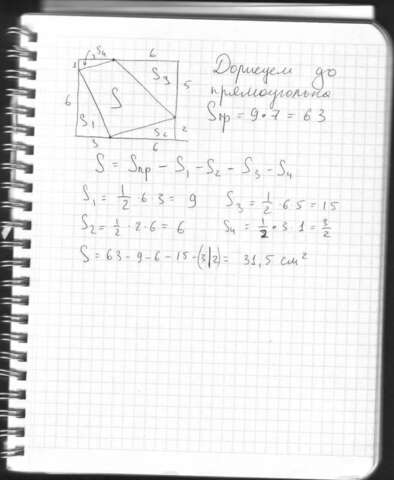 S₄ 6
1 3 S₃
5
6 S
S₁ S₂ 2
3 6
Дорисуем до
прямоугольна
Sпр = 9·7 = 63
S = Sпр – S₁ – S₂ – S₃ – S₄
S₁ = 1/2 · 6 3 = 9 S₃ = 1/2 · 6 5 = 15
S₂ = 1/2 · 2 · 6 = 6 S₄ = 1/2 · 3 · 1 = 3/2
S = 63 – 9 – 6 – 15 – (3/2) = 31,5 см²